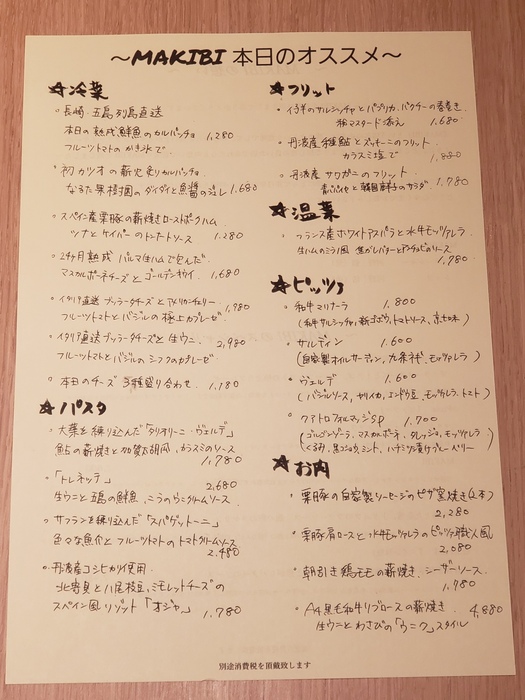 ～MAKIBI 本日のオススメ～
☆冷菜
・長崎 五島列島直送
本日の熟成鮮魚のカルパッチョ 1,280
フルーツトマトのかき氷で
・初カツオの薪火炙りカルパッチョ
なるた果樹園のダイダイと魚醤のジュレ 1,680
・スペイン産栗豚の薪焼きローストポークハム
ツナとケイパーのトンナートソース 1,280
・24ヶ月熟成 パルマ生ハムで包んだ
マスカルポーネチーズとゴールデンキウイ 1,680
・イタリア直送ブッラータチーズとアメリカンチェリー 1,980
フルーツトマトとバジルの極上カプレーゼ
・イタリア直送ブッラータチーズと生ウニ 2,980
フルーツトマトとバジルのシェフのカプレーゼ
・本日のチーズ 3種盛り合わせ 1,180
☆パスタ
・大葉を練り込んだ「タリオリーニ・ヴェルデ」
鮎の薪焼きと加賀太胡瓜 カラスミのソース
1,780
・「トレネッテ」 2,680
生ウニと五島の鮮魚 クリームソース
・サフランを練り込んだ「スパゲットーニ」
色々な魚介とフルーツトマトのトマトクリームソース
2,480
・丹波産コシヒカリ使用
北寄貝と八尾枝豆、ミモレットチーズの
スペイン風リゾット「オジヤ」 1,780
☆フリット
・イタ羊のサルシッチャとパプリカ、パクチーの春巻き
粒マスタード添え 1,680
・丹波産稚鮎とズッキーニのフリット
カラスミ塩で 1,880
・丹波産サワガニのフリット
青パパイヤと韓国唐辛子のサラダ 1,780
☆温菜
・フランス産ホワイトアスパラと水牛モッツァレラ
生ハムのミラノ風 焦がしバターとアンチョビのソース
1,780
☆ピッツァ
・和牛マリナーラ 1,800
(和牛サルシッチャ、新ゴボウ、トマトソース、京七味)
・サルディン 1,600
(自家製オイルサーディン、九条ネギ、モッツァレラ)
・ヴェルデ 1,600
(バジルソース、ヤリイカ、エンドウ豆、モッツァレラ、トマト)
・クアトロフォルマッジSP 1,700
(ゴルゴンゾーラ、マスカルポーネ、タレッジョ、モッツァレラ
くるみ、黒コショウ、ミント、ハチミツ漬けブルーベリー)
☆お肉
・栗豚の自家製ソーセージのピザ窯焼き(2本)
2,280
・栗豚肩ロースと水牛モッツァレラのピッツァ職人風
2,080
・朝引き鶏モモの薪焼き シーザーソース
1,780
・A4黒毛和牛リブロースの薪焼き 4,880
生ウニとわさびの「ウニク」スタイル
別途消費税を頂戴致します